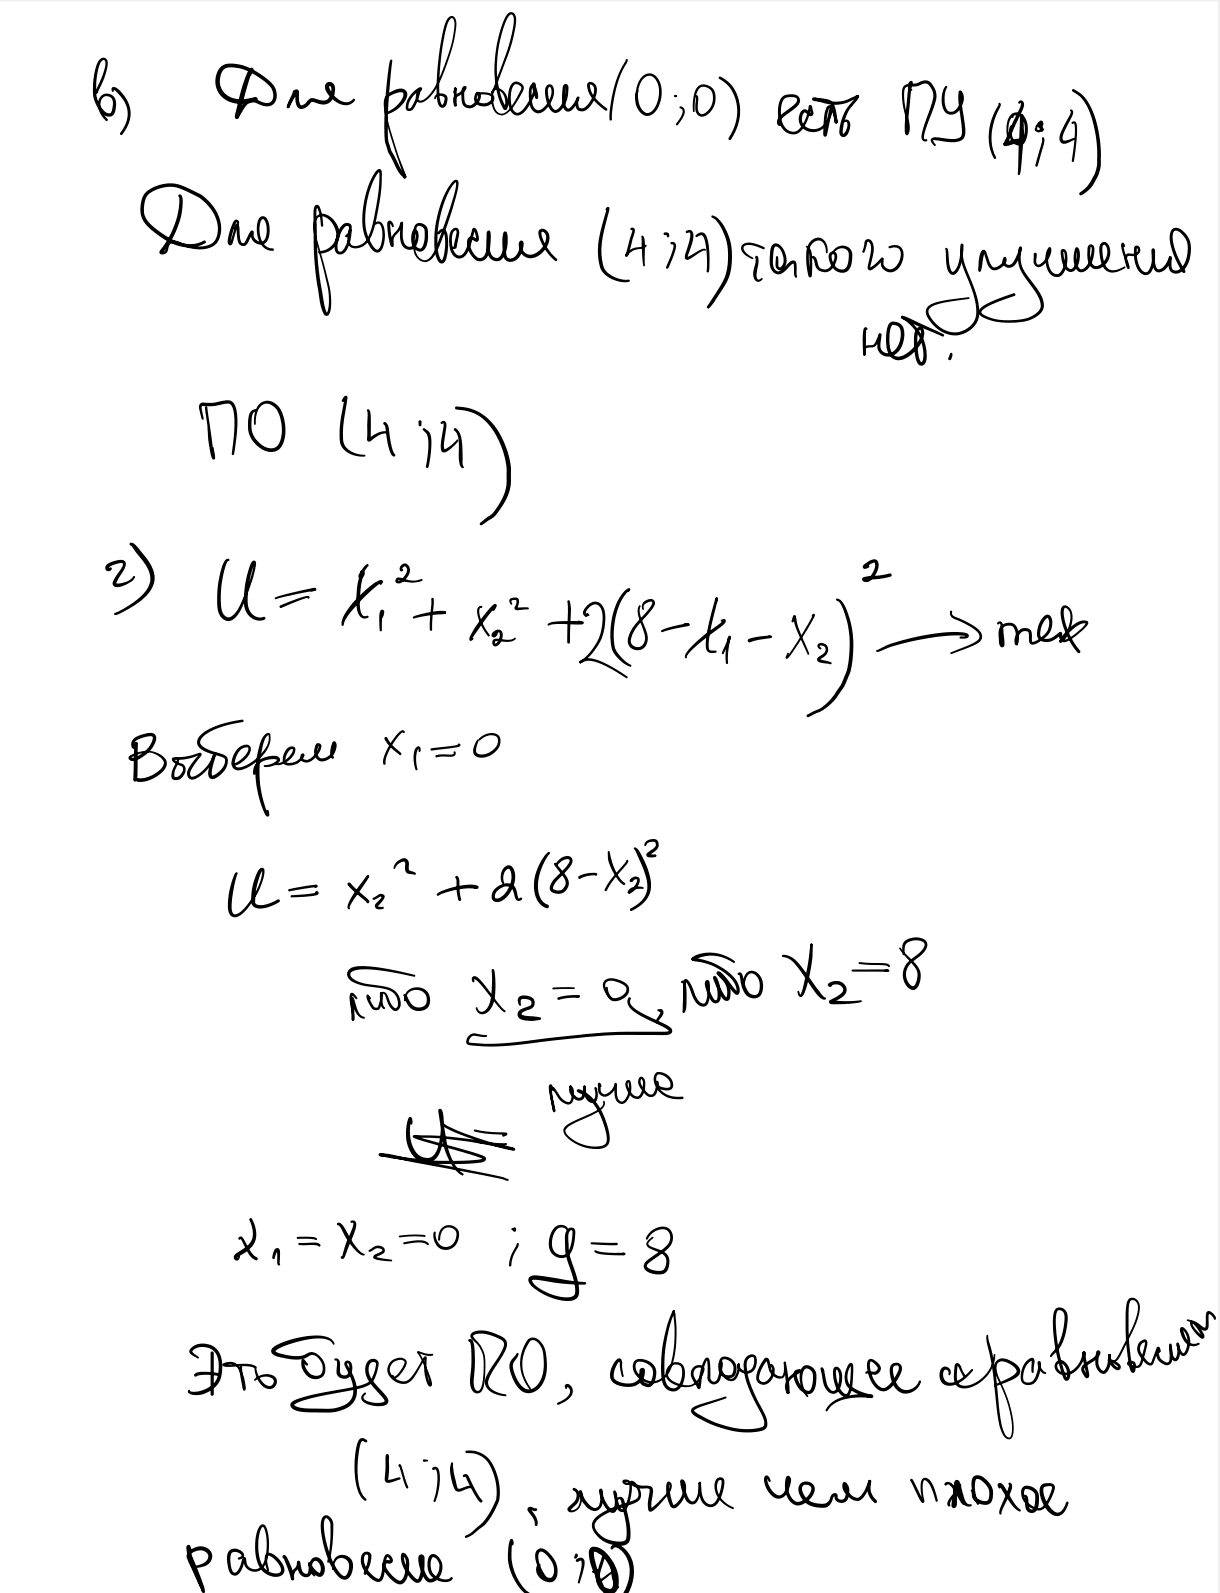 в) Для равновесия (0;0) есть ПУ (4;4)
Для равновесия (4;4) такого улучшения
нет.
ПО (4;4)
г) U = x₁² + x₂² + 2(8-x₁-x₂)² → max
Выберем x₁=0
U = x₂² + 2(8-x₂)²
либо x₂ = 0, либо x₂=8
лучше
x₁ = x₂ =0 ; g = 8
Это будет ПО, совпадающее с равновесием
(4;4), лучше чем плохое
равновесие (0;0)